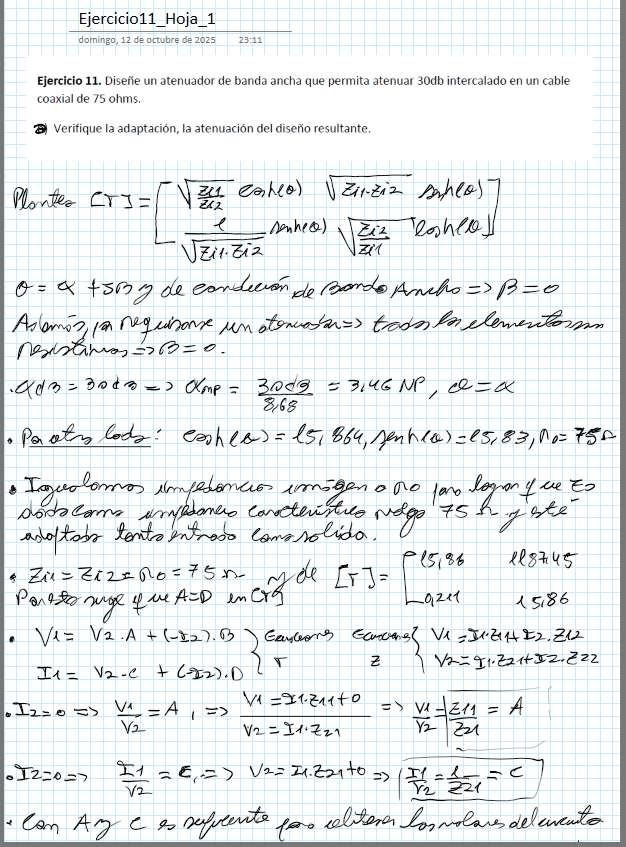 Ejercicio11_Hoja_1
domingo, 12 de octubre de 2025 23:11
Ejercicio 11. Diseñe un atenuador de banda ancha que permita atenuar 30db intercalado en un cable
coaxial de 75 ohms.
Verifique la adaptación, la atenuación del diseño resultante.
[T] = [ √(Zi1/Zi2) cosh(θ) √(Zi1·Zi2) senh(θ)
1/√(Zi1·Zi2) senh(θ) √(Zi2/Zi1) cosh(θ) ]
θ = α + jβ y de condición de Banda Ancha => β = 0
Además, requiere un atenuador => todos los elementos son
resistivos => β = 0.
· αdB = 30dB => αNP = 30dB/8,68 = 3,46 NP, θ = α
· Por otro lado: cosh(θ) = 15,864, senh(θ) = 15,83, Ro = 75Ω
· Igualamos impedancias imagen a Ro para lograr que
como impedancia característica valga 75 Ω y esté
adaptado tanto entrada como salida.
· Zi1 = Zi2 = Ro = 75 Ω y de [T] = [ 15,86 1187,45
Por esto surge que A=D en [T] 0,211 15,86 ]
· V1 = V2·A + (-I2)·B } Ecuaciones Ecuaciones { V1 = I1·Z11 + I2·Z12
I1 = V2·C + (-I2)·D } T Z { V2 = I1·Z21 + I2·Z22
· I2=0 => V1/V2 = A, => V1 = I1·Z11+0 / V2 = I1·Z21 => V1/V2 = Z11/Z21 = A
· I2=0 => I1/V2 = C, => V2 = I1·Z21+0 => I1/V2 = 1/Z21 = C
· Con A y C es suficiente para obtener los valores del circuito